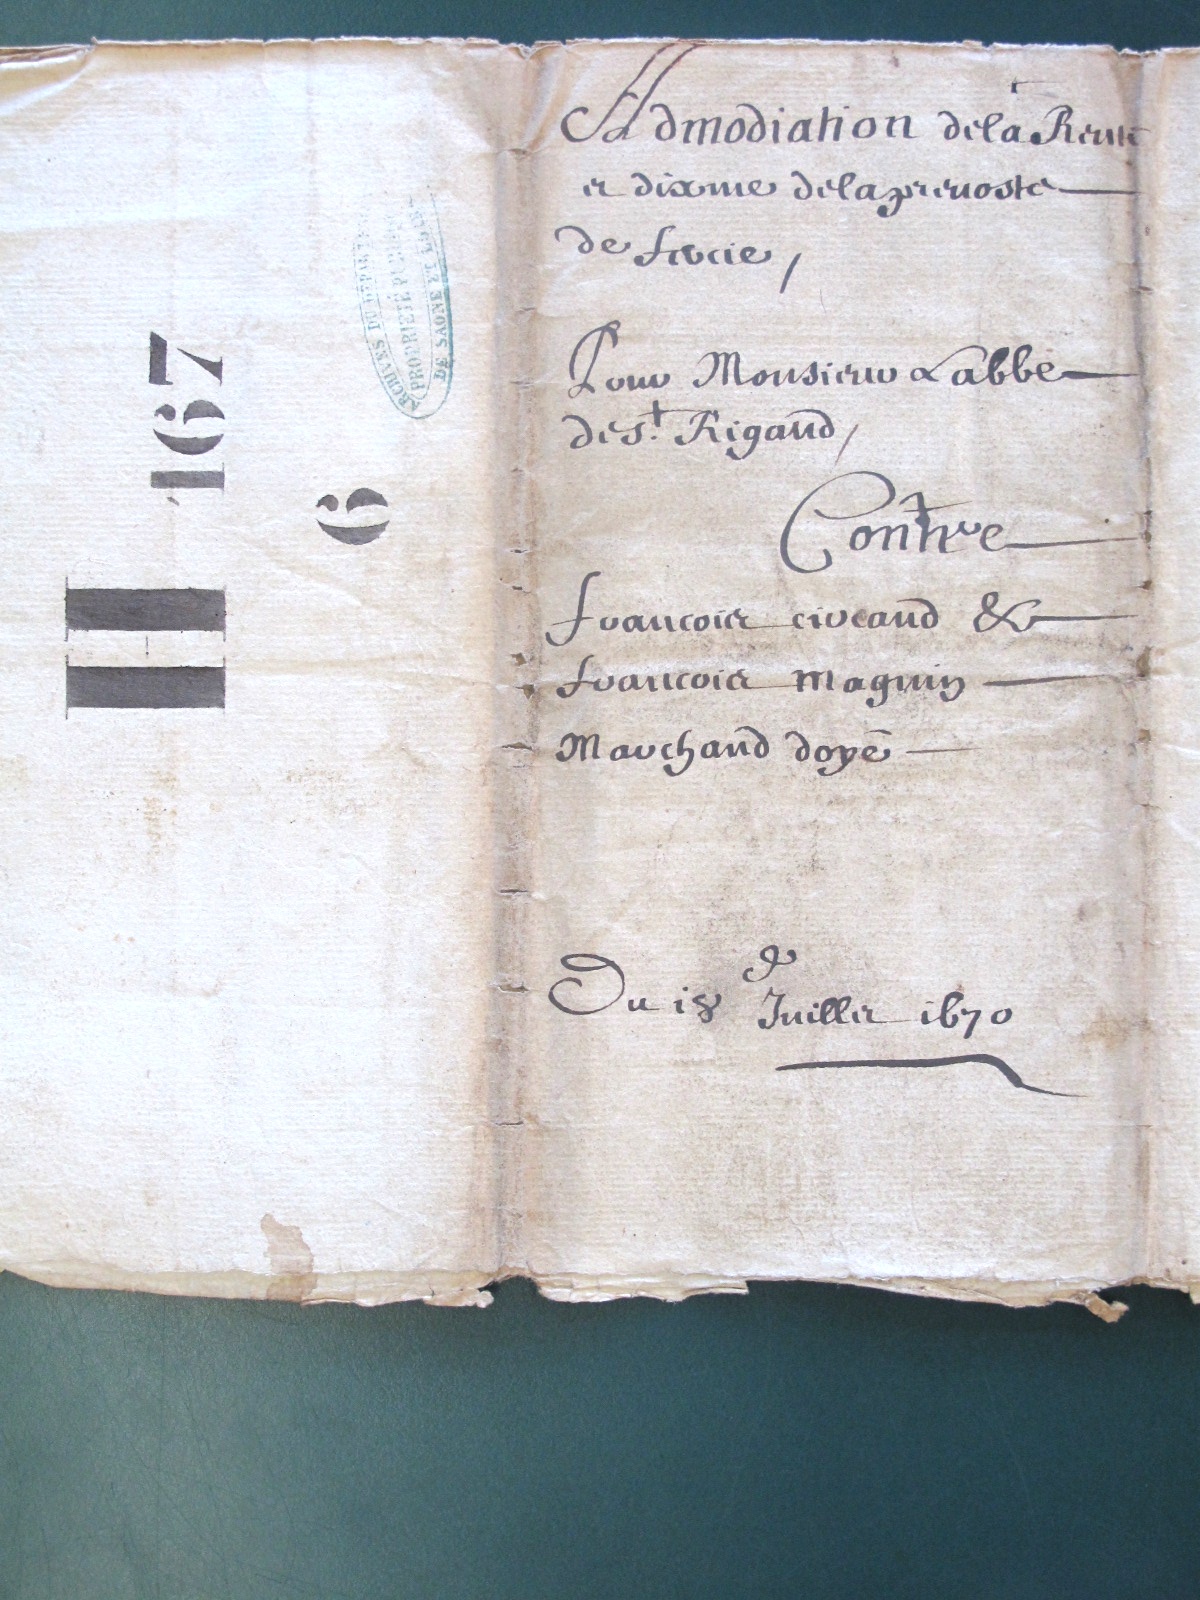 H 167
6
ARCHIVES DU DÉPARTEMENT
PROPRIÉTÉ PUBLIQUE
DE SAONE ET LOIRE
Admodiation de la Rente
et dixme de la prevoste
de
Pour Monsieur Labbé
de St. Rigaud,
Contre
francois civeaud &
francois Magnin
Marchand doyé
Du 18e Juillet 1670